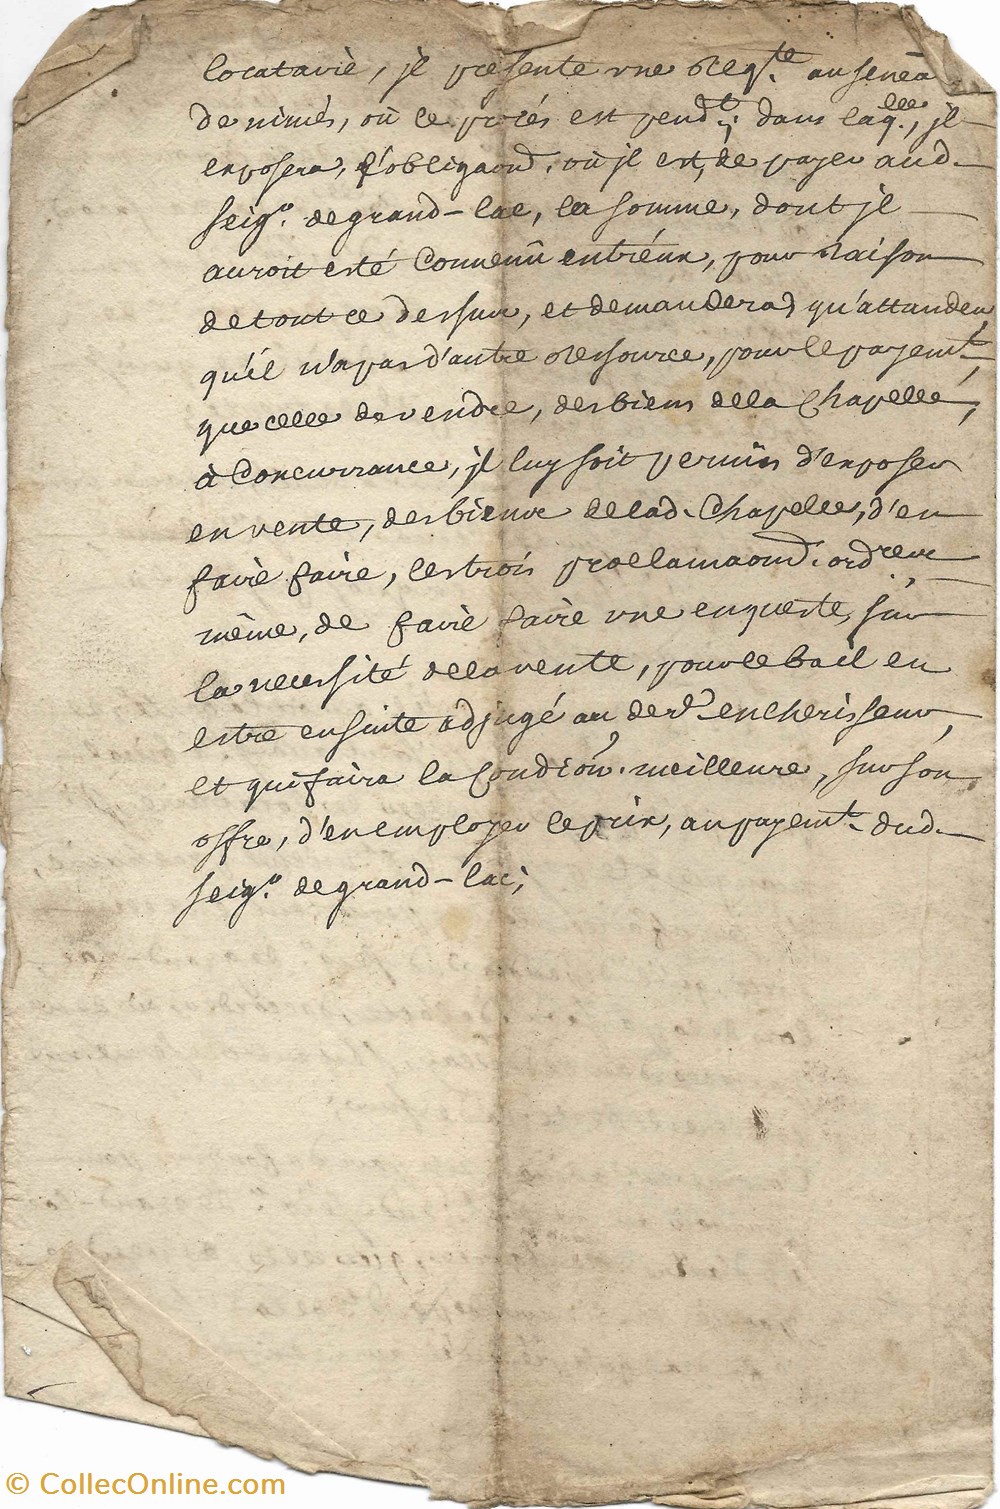 locatairè, jl présente une Reqte. au senéa
de nimés, où le procés est pendt; dans laqlle, jl
exposera, l'obligaon̄d. où jl est, de payer aud.
seigr. de grand-lac, la somme, dont jl
auroit esté Convenû entréux, pour raison
de tout ce dessus, et demandera, qu'attandeu,
qu'il n'a pas d'autre Ressource, pour le payemt.,
que celle de vendre, des biens de la Chapelle,
à Concurrance, jl luy soit permis d'exposer
en vente, des biens de lad. Chapelle, d'en
fairè faire, les trois proclamaon̄d. ordres,
même, de fairè fairè une enqueste, sûr
la necessité de la vente, pour le bail en
estre ensuite adjugé au derr. encherisseur,
et qui faira la Condiōn. meilleure, sur son
offre, d'en employer le prix, au payemt. dud.
seigr. de grand-lac;
© CollecOnline.com